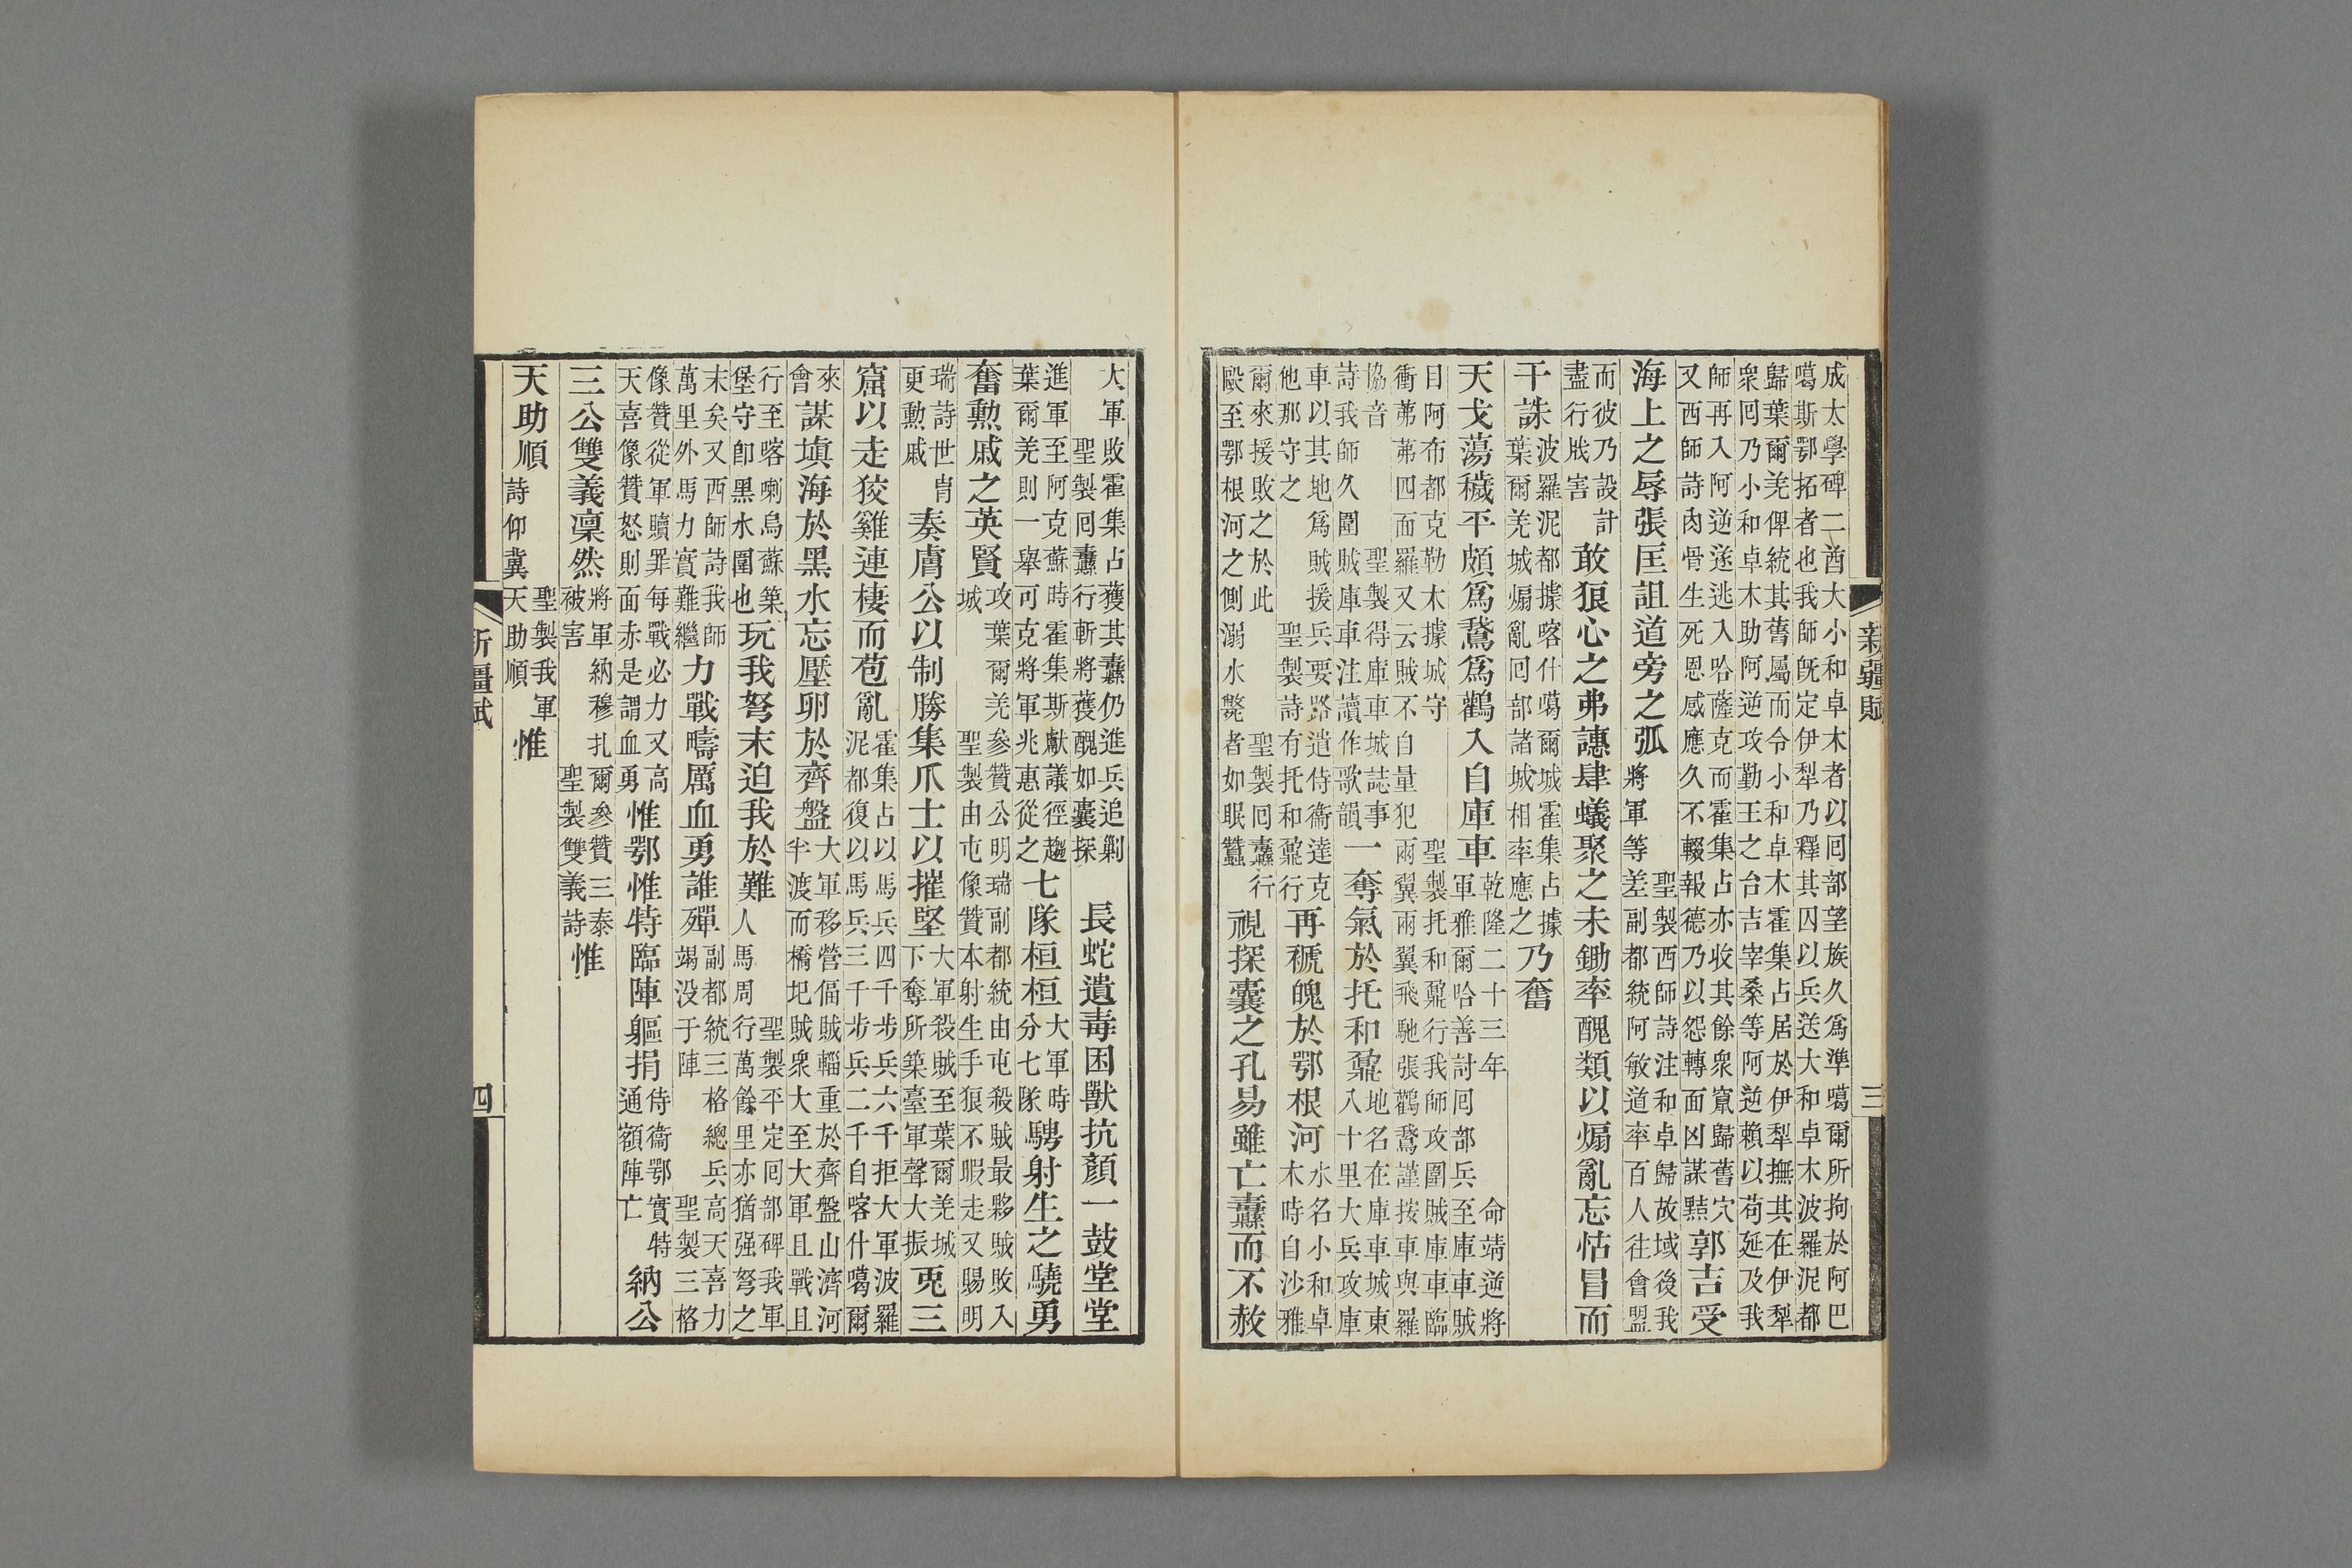 新疆賦
三
成太學碑二酋大小和卓木者以囘部望族久爲準噶爾所拘於阿巴
噶斯鄂拓者也我師旣定伊犁乃釋其囚以兵送大和卓木波羅泥都
歸葉爾羌俾統其舊屬而令小和卓木霍集占居於伊犁撫其在伊犁
衆囘乃小和卓木助阿逆攻勤王之台吉宰桑等阿逆賴以苟延及我
師再入阿逆遂逃入哈薩克而霍集占亦收其餘衆竄歸舊穴
又西師詩肉骨生死恩感應久不輟報德乃以怨轉面凶謀黠
郭吉受
海上之辱張匡詛道旁之弧
聖製西師詩注和卓歸故域後我
將軍等差副都統阿敏道率百人往會盟
而彼乃設計
盡行戕害
敢狼心之弗譓肆蟻聚之未鋤率醜類以煽亂忘怙冒而
干誅
波羅泥都據喀什噶爾城霍集占據
葉爾羌城煽亂囘部諸城相率應之
乃奮
天戈蕩穢平頗爲鵞爲鸛入自庫車
乾隆二十三年 命靖逆將
軍雅爾哈善討囘部兵至庫車賊
目阿布都克勒木據城守 聖製托和鼐行我師攻圍賊庫車臨
衝茀茀四面羅又云賊不自量犯兩翼兩翼飛馳張鸛鵞謹按車與羅
協音 聖製得庫車城誌事
詩我師久圍賊庫車注讀作歌韻
一奪氣於托和鼐
地名在庫車城東
八十里大兵攻庫
車以其地爲賊援兵要路遣侍衞達克
他那守之 聖製詩有托和鼐行
再褫魄於鄂根河
水名小和卓
木時自沙雅
爾來援敗之於此 聖製囘纛行
毆至鄂根河之側溺水斃者如眠蠶
視探囊之孔易雖亡纛而不赦
大軍敗霍集占獲其纛仍進兵追剿
聖製囘纛行斬將獲醜如囊探
長蛇遺毒困獸抗顏一鼓堂堂
進軍至阿克蘇時霍集斯獻議徑趨
葉爾羌則一舉可克將軍兆惠從之
七隊桓桓
大軍時
分七隊
騁射生之驍勇
奮勲戚之英賢
攻葉爾羌參贊公明瑞副都統由屯殺賊最夥賊敗入
城 聖製由屯像贊本射生手狠不暇走又賜明
瑞詩世冑
更勲戚
奏膚公以制勝集爪士以摧堅
大軍殺賊至葉爾羌城
下奪所築臺軍聲大振
兎三
窟以走狡雞連棲而苞亂
霍集占以馬兵四千步兵六千拒大軍波羅
泥都復以馬兵三千步兵二千自喀什噶爾
來
會
謀塡海於黑水忘壓卵於齊盤
大軍移營偪賊輜重於齊盤山濟河
半渡而橋圮賊衆大至大軍且戰且
行至喀喇烏蘇築
堡守卽黑水圍也
玩我弩末迫我於難
聖製平定囘部碑我軍
人馬周行萬餘里亦猶强弩之
末矣又西師詩我師
萬里外馬力實難繼
力戰疇厲血勇誰殫
副都統三格總兵高天喜力
竭没于陣 聖製三格
像贊從軍贖罪每戰必力又高
天喜像贊怒則面赤是謂血勇
惟鄂惟特臨陣軀捐
侍衞鄂實特
通額陣亡
納公
三公雙義凜然
將軍納穆扎爾參贊三泰
被害 聖製雙義詩
惟
天助順
聖製我軍
詩仰冀天助順
惟
新疆賦
四